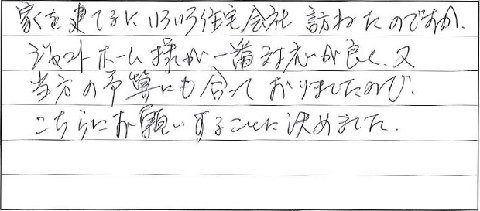 家を建てるにいろいろ住宅会社訪ねたのですが、
ジャストホーム様が一番対応が良く、又
当方の予算にも合っておりましたので、
こちらにお願いすることに決めました。